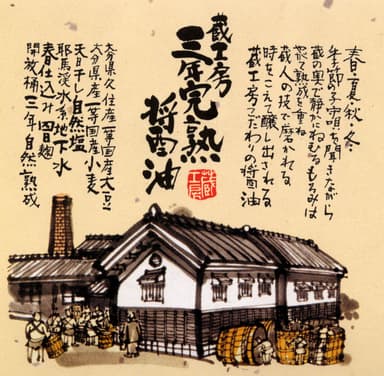 春夏秋冬
季節の子守唄を聞きながら
蔵の奥で静かにねむるもろみは
寝て熟成を重ね
蔵人の技で磨かれる
時をこえて醸し出される
蔵工房こだわりの醤油
蔵工房
三年完熟
醤油
蔵工房
大分県久住産一等国産大豆
大分県産一等国産小麦
天日干し自然塩
耶馬渓水系地下水
春仕込み四日麹
開放桶三年自然熟成